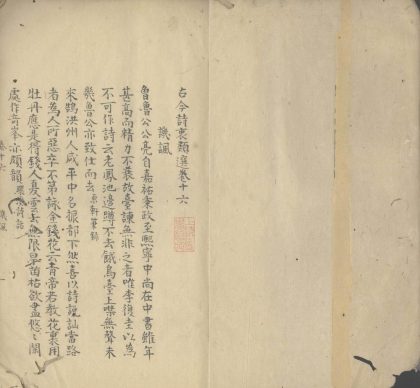 古今詩裏類選卷十六
譏諷
曾魯公公亮自嘉祐秉政至熙寧中尚在中書雖年
甚高而精力不衰故臺諫無非之者唯李復圭以為
不可作詩云老鳳池邊蹲不去饑烏臺上噤無聲未
幾魯公亦致仕而去東軒筆錄
來鵠洪州人咸平中名振都下然喜以詩譏訕當路
者為人所惡卒不第詠金錢花云青帝若教花裏用
牡丹應是得錢人夏雲云無限旱苗枯欲盡悠〻閒
處作奇峯亦頗韻
卷十六 譏諷